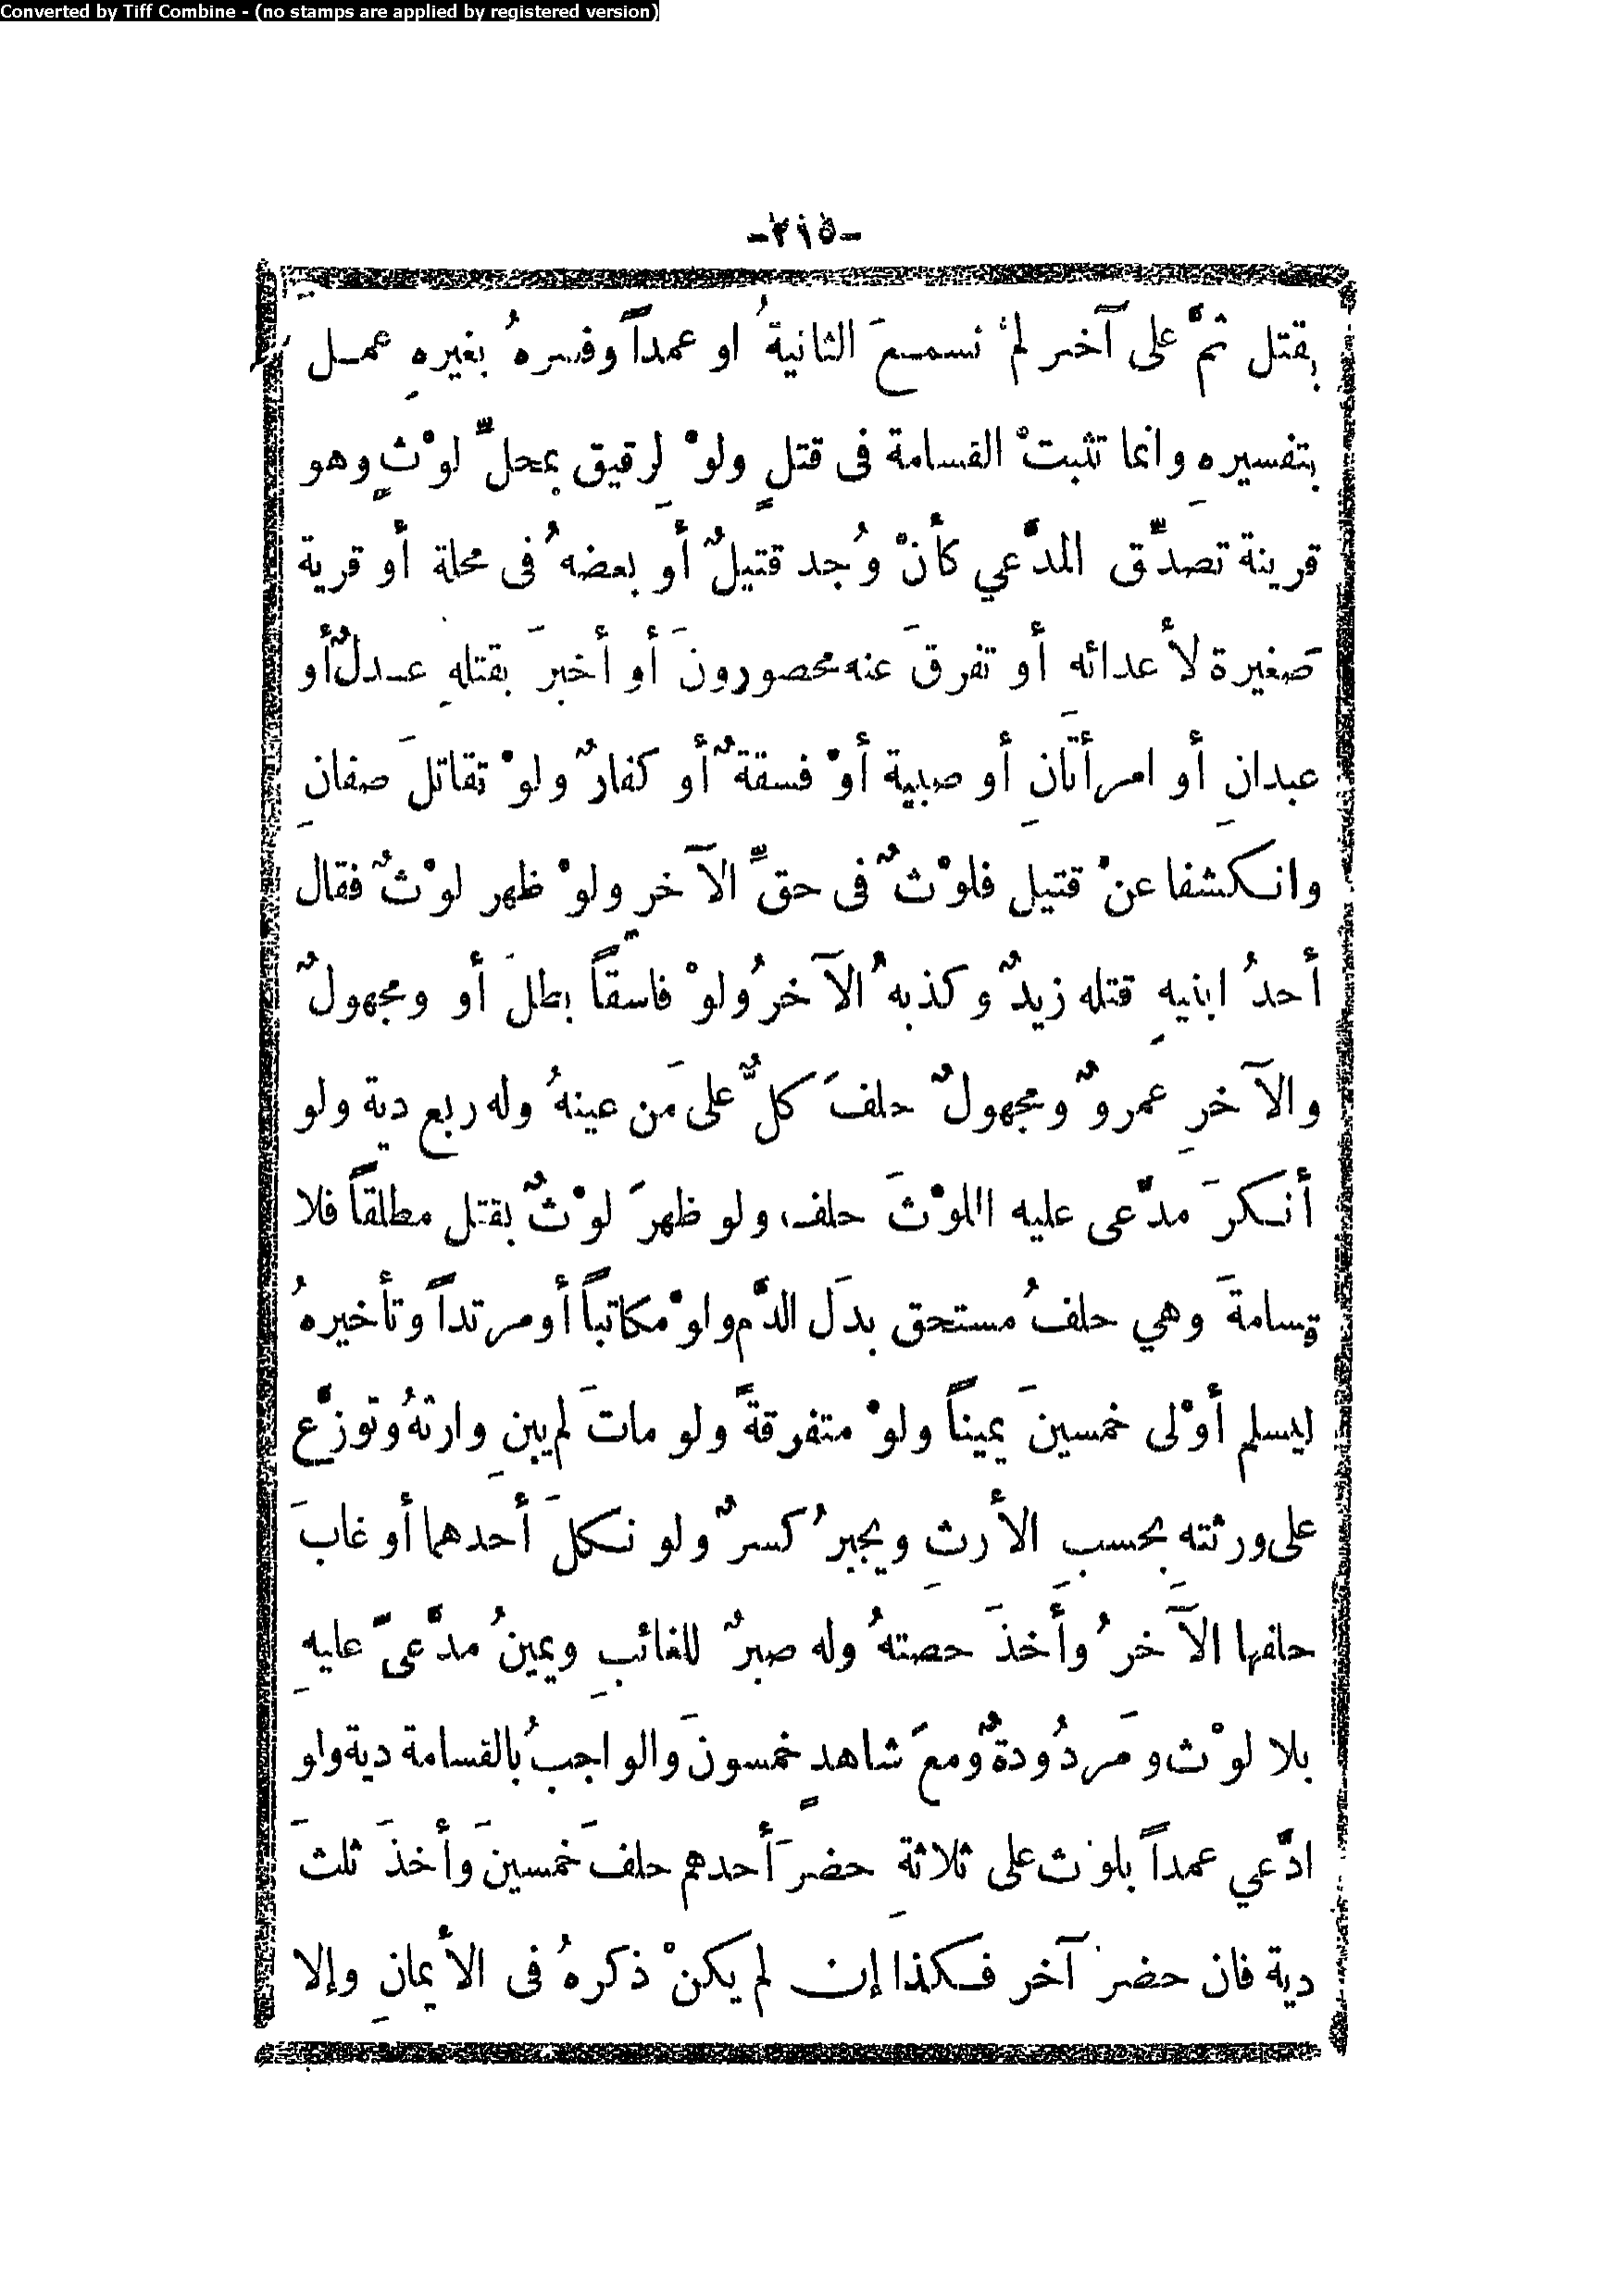 Converted by Tiff Combine - (no stamps are applied by registered version)
-٢١٥-
بقتل ثمَّ على آخر لمْ نسمعَ الثانيةُ او عمداً وفسره بغيرهِ عمل
بتفسيرهِ وانما تثبتْ القسامة فى قتلٍ ولوْ لِرقيق بمحلِّ لوْثٍ وهو
قرينة تصدِّق المدَّعي كأنْ وُجد قتيلٌ أو بعضهُ فى محلة أو قرية
صَغيرة لأعدائه أو تفرقَ عنه محصورونَ أو أخبرَ بقتلهِ عـدلٌ أو
عبدانِ أو امرأتَانِ أو صبية أوْ فسقةٌ أو كفارٌ ولوْ تقاتلَ صفانِ
وانـكشفا عنْ قتيل فلوْثٌ فى حقِّ الآخرِ ولوْ ظهر لوْثٌ فقال
أحدُ ابنيهِ قتله زيدٌ وكذبهُ الآخرُ ولوْ فاسقاً بطلَ أو ومجهولٌ
والآخرِ عمروٌ ومجهولٌ حلفَ كلٌّ على مَن عينهُ وله ربع دية ولو
أنـكرَ مدَّعى عليه اللوْثَ حلف، ولو ظهرَ لوْثٌ بقتل مطلقاً فلا
قسامةَ وهي حلفُ مستحق بدَل الدَّم ولوْ مكاتباً أو مرتداً وتأخيرهُ
ليسلم أوْلى خمسينَ يميناً ولوْ متفرقةً ولو ماتَ لم يبنِ وارثهُ وتوزَّع
على ورثته بحسبِ الأرثِ ويجبرُ كسرٌ ولو نـكلَ أحدهما أو غابَ
حلفها الآخرُ وأَخذَ حصتهُ وله صبرٌ للغائبِ ويمينُ مدَّعىً عليهِ
بلا لوْث ومَردُودةٌ ومعَ شاهدٍ خمسونَ والواجبُ بالقسامة دية ولو
ادَّعي عمداً بلوْث على ثلاثةِ حضرَ أحدهم حلفَ خمسينَ وأخذَ ثلثَ
دية فان حضرَ آخر فـكذا إن لم يكنْ ذكرهُ فى الأيمانِ وإلا